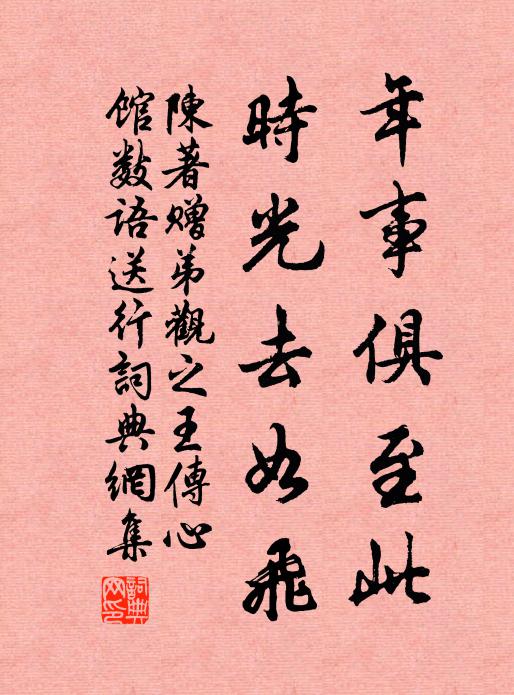 年事俱至此
時光去如飛
陳著贈弟觀之王傳心
馆数語送行詞典網集
詞典网印